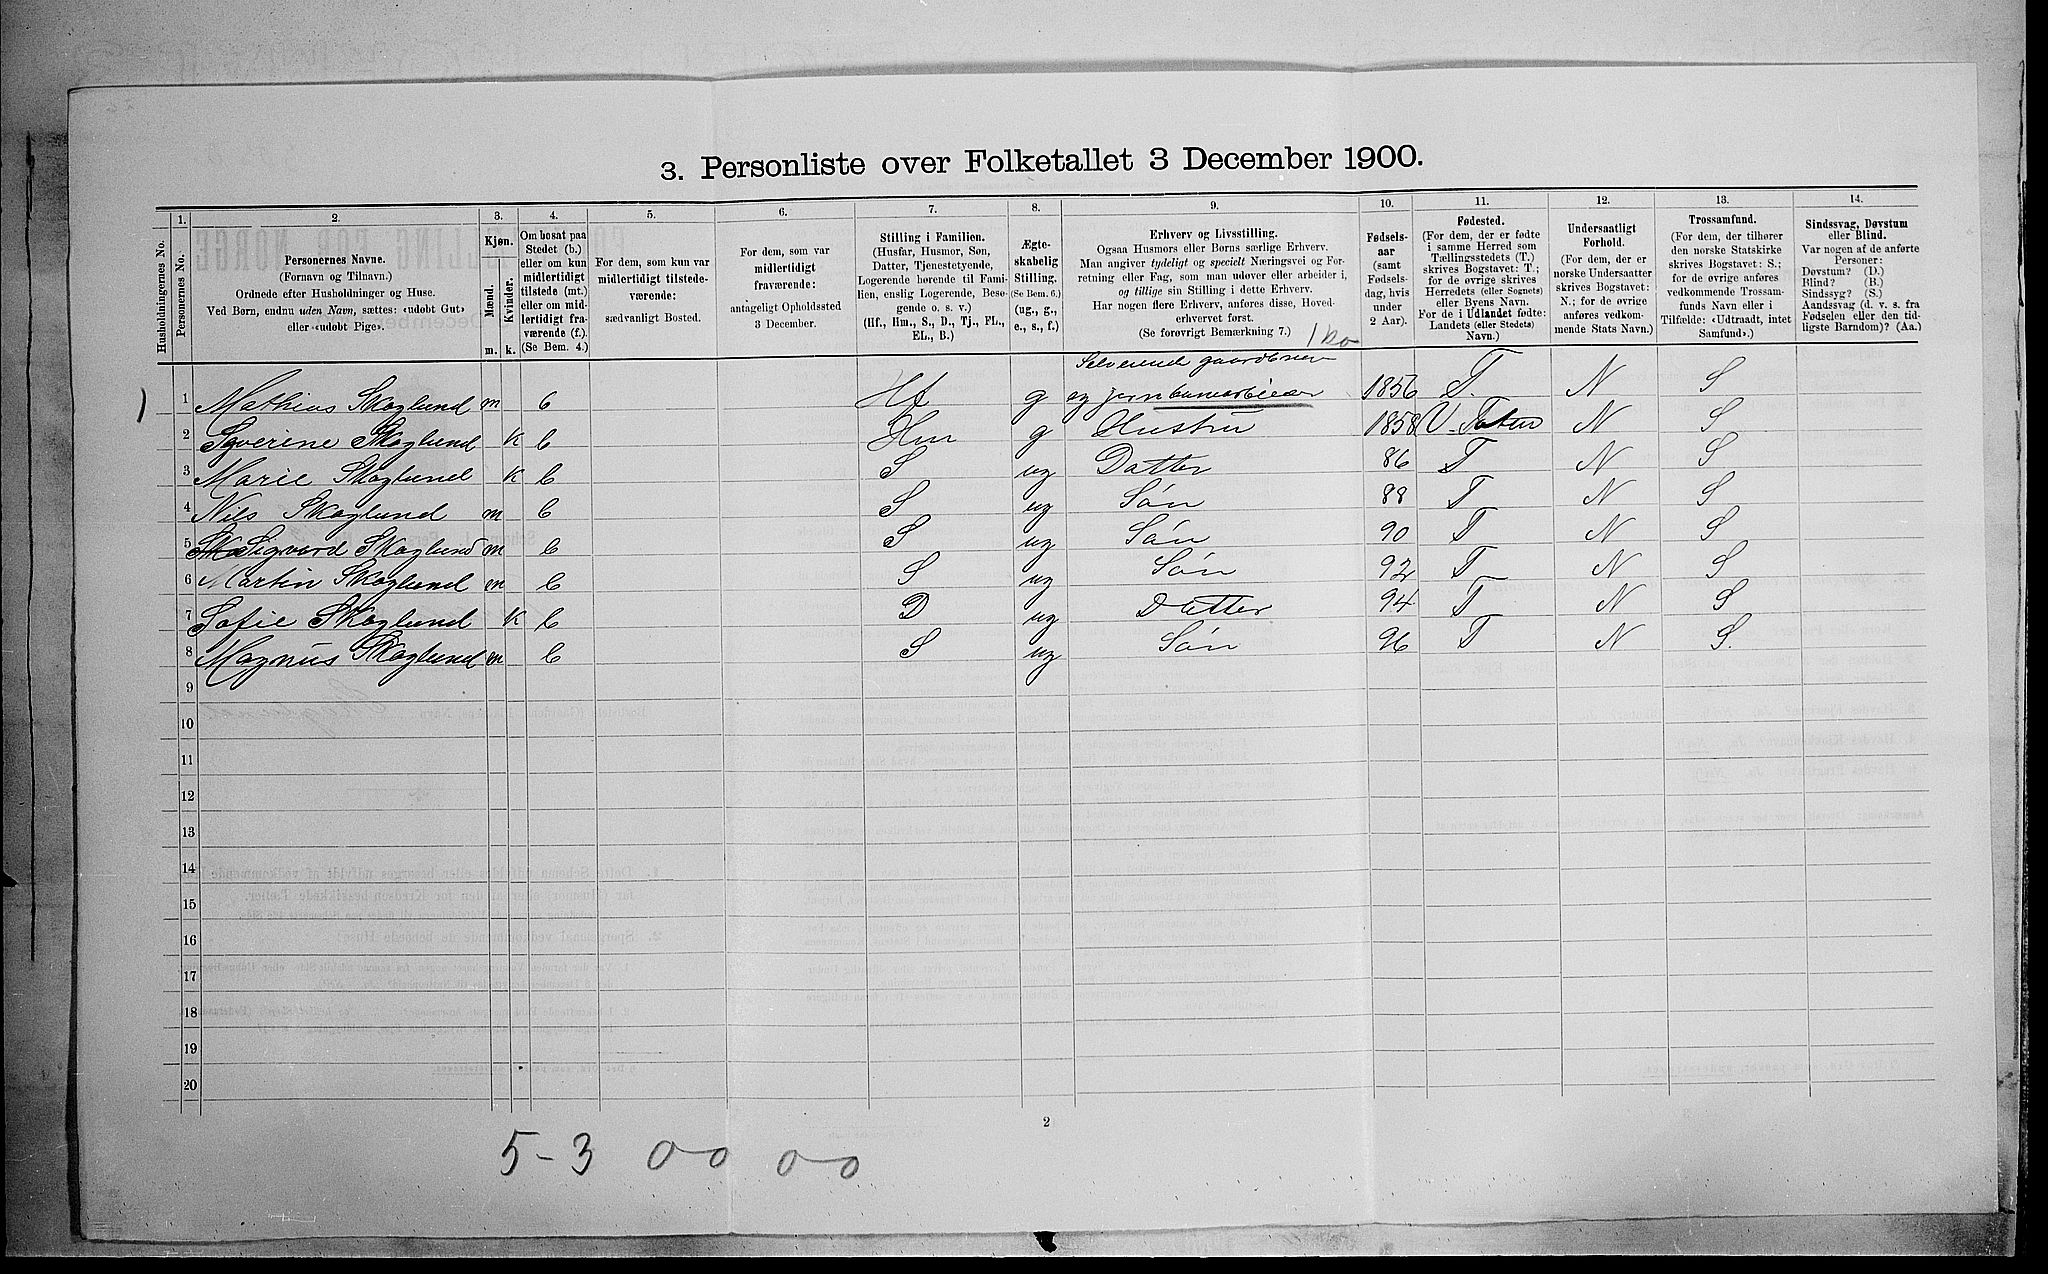 3. Personliste over Folketallet 3 December 1900.
Husholdningernes No.
1.
Personernes No.
2.
Personernes Navne.
(Fornavn og Tilnavn.)
Ordnede efter Husholdninger og Huse.
Ved Børn, endnu uden Navn, sættes: «udøbt Gut»
eller «udøbt Pige».
3.
Kjøn.
Mænd.
Kvinder.
m.
k.
4.
Om bosat paa
Stedet (b.)
eller om kun
midlertidigt
tilstede (mt.)
eller om mid-
lertidigt fra-
værende (f.).
(Se Bem. 4.)
5.
For dem, som kun var
midlertidigt tilstede-
værende:
sædvanligt Bosted.
6.
For dem, som var
midlertidigt
fraværende:
antageligt Opholdssted
3 December.
7.
Stilling i Familien.
(Husfar, Husmor, Søn,
Datter, Tjenestetyende,
Logerende hørende til Fami-
lien, enslig Logerende, Besø-
gende o. s. v.)
(Hf., Hm., S., D., Tj., FL.,
EL., B.)
8.
Ægte-
skabelig
Stilling.
(Se Bem. 6.)
(ug., g.,
e., s., f.)
9.
Erhverv og Livsstilling.
Ogsaa Husmors eller Børns særlige Erhverv.
Man angiver tydeligt og specielt Næringsvei og For-
retning eller Fag, som man udøver eller arbeider i,
og tillige sin Stilling i dette Erhverv.
Har nogen flere Erhverv, anføres disse, Hoved-
erhvervet først.
(Se forøvrigt Bemærkning 7.)
10.
Fødsels-
aar
(samt
Fødsels-
dag, hvis
under
2 Aar).
11.
Fødested.
(For dem, der er fødte
i samme Herred som
Tællingsstedets (T.)
skrives Bogstavet: T.;
for de øvrige skrives
Herredets (eller Sognets)
eller Byens Navn.
For de i Udlandet fødte:
Landets (eller Stedets)
Navn.)
12.
Undersaatligt
Forhold.
(For dem, der er
norske Undersaatter
skrives Bogstavet:
N.; for de øvrige
anføres vedkom-
mende Stats Navn.)
13.
Trossamfund.
(For dem, der tilhører
den norske Statskirke
skrives Bogstavet: S.;
for de øvrige anføres
vedkommende Trossam-
funds Navn eller i
Tilfælde: «Udtraadt, intet
Samfund».)
14.
Sindssvag, Døvstum
eller Blind.
Var nogen af de anførte
Personer:
Døvstum? (D.)
Blind? (B.)
Sindssyg? (S.)
Aandssvag (d. v. s. fra
Fødselen eller den tid-
ligste Barndom)? (Aa.)
Selveiende gaardbruer
1 Mathias Skoglund m b Hf g og jernbanearbeider 1856 T. N S
2 Syverine Skoglund k b Hm g Hustru 1858 V. Toten N S
3 Marie Skoglund k b S ug Datter 86 T N S
4 Nils Skoglund m b S ug Søn 88 T N S
5 Sigvard Skoglund m b S ug Søn 90 T N S
6 Martin Skoglund m b S ug Søn 92 T N S
7 Sofie Skoglund k b D ug Datter 94 T N S
8 Magnus Skoglund m b S ug Søn 96 T N S.
9
10
11
12
13
14
15
16
17
18
19
20
2
5-3 0-0 0-0